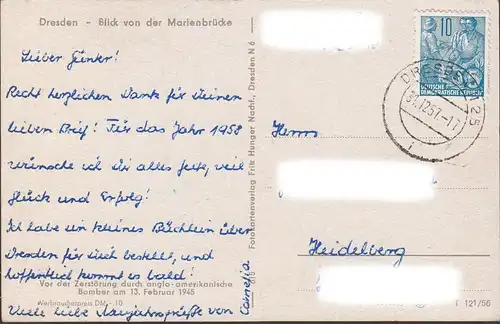 Dresden - Blick von der Marienbrücke
Lieber Günter!
Recht herzlichen Dank für Deinen
lieben Brief! Für das Jahr 1958
wünsche ich Dir alles Gute, viel
Glück und Erfolg!
Ich habe ein kleines Büchlein über
Dresden für Dich bestellt, und
hoffentlich kommt es bald!
Vor der Zerstörung durch anglo-amerikanische
Bomber am 13. Februar 1945
Verbraucherpreis DM -.10
Viele liebe Neujahrsgrüße von
Fotokartenverlag Fritz Hunger Nachf., Dresden N 6
10
DEUTSCHE
DEMOKRATISCHE REPUBLIK
DRESDEN A 25
31.12.57.-17
Herrn
Heidelberg
T 121/56